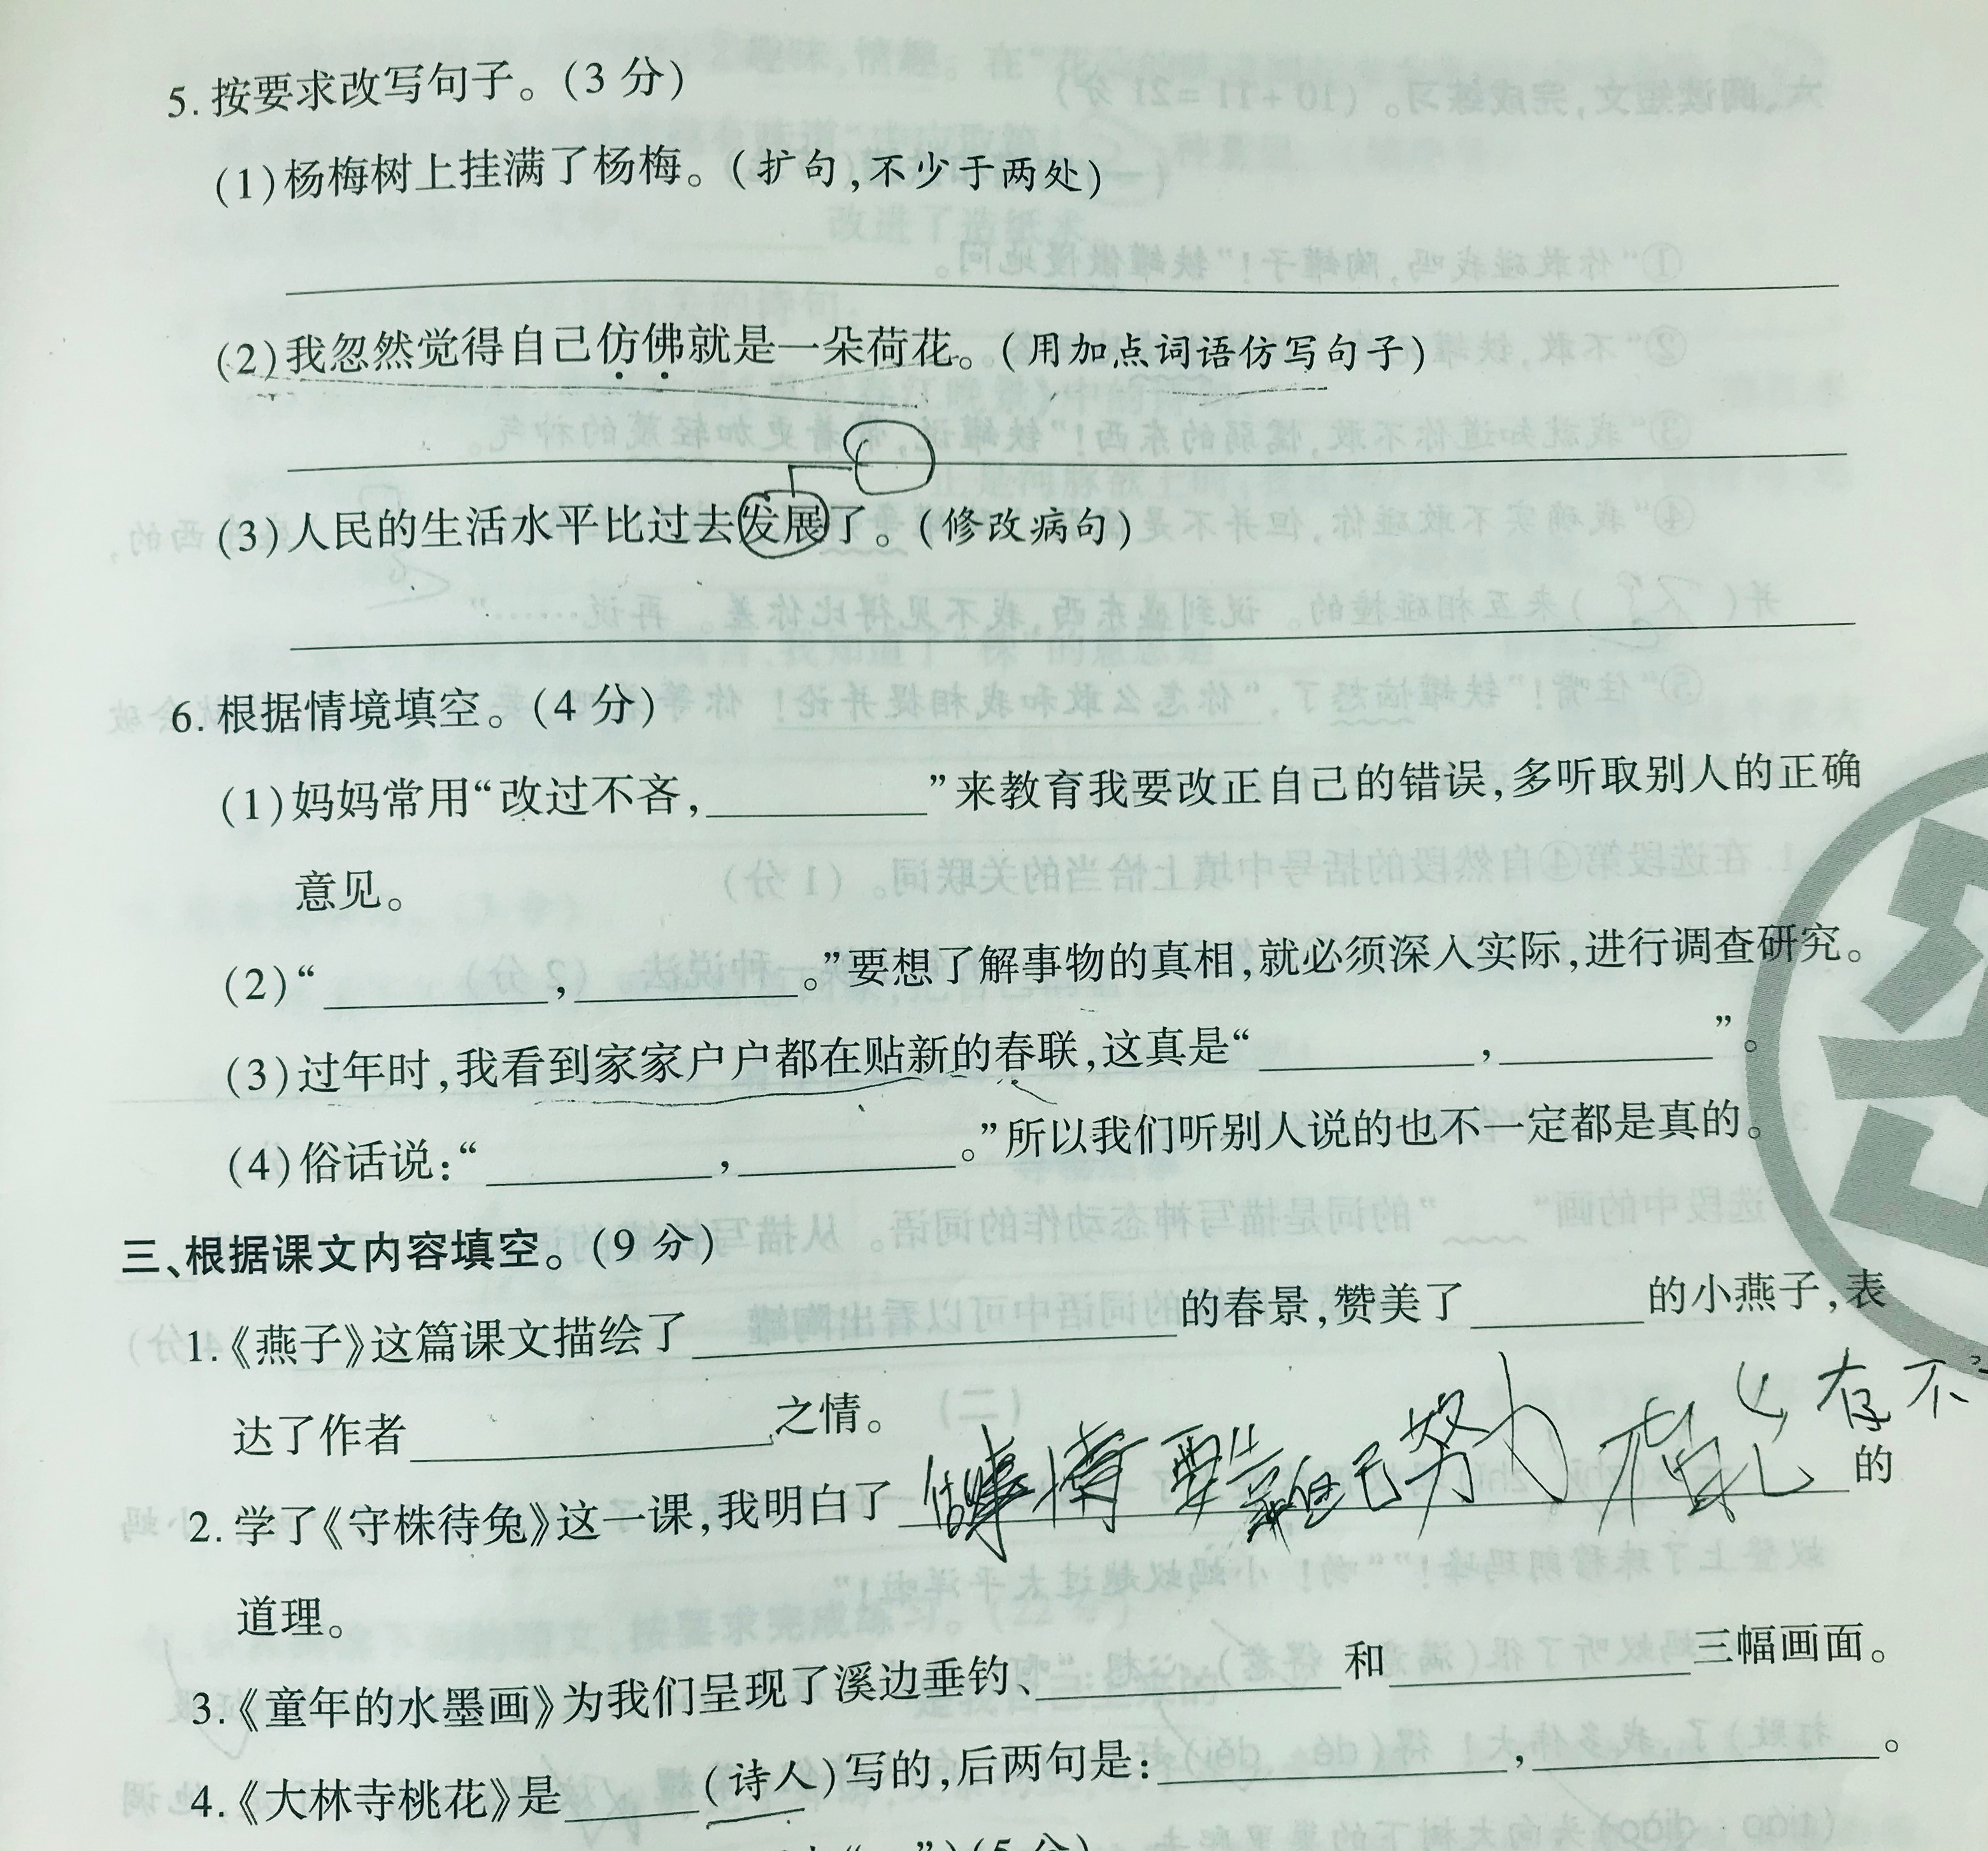 5. 按要求改写句子。(3 分)
(1)杨梅树上挂满了杨梅。(扩句,不少于两处)
(2)我忽然觉得自己仿佛就是一朵荷花。(用加点词语仿写句子)
(3)人民的生活水平比过去发展了。(修改病句)
6. 根据情境填空。(4 分)
(1)妈妈常用“改过不吝,__________”来教育我要改正自己的错误,多听取别人的正确
意见。
(2)“__________,__________。”要想了解事物的真相,就必须深入实际,进行调查研究。
(3)过年时,我看到家家户户都在贴新的春联,这真是“__________,__________”。
(4)俗话说:“__________,__________。”所以我们听别人说的也不一定都是真的。
三、根据课文内容填空。(9 分)
1.《燕子》这篇课文描绘了____________________的春景,赞美了________的小燕子,表
达了作者________________之情。
心存不
2. 学了《守株待兔》这一课,我明白了做事情要靠自己努力 不能 的
道理。
3.《童年的水墨画》为我们呈现了溪边垂钓、______________和______________三幅画面。
4.《大林寺桃花》是______(诗人)写的,后两句是:________________,________________。
(5 分)